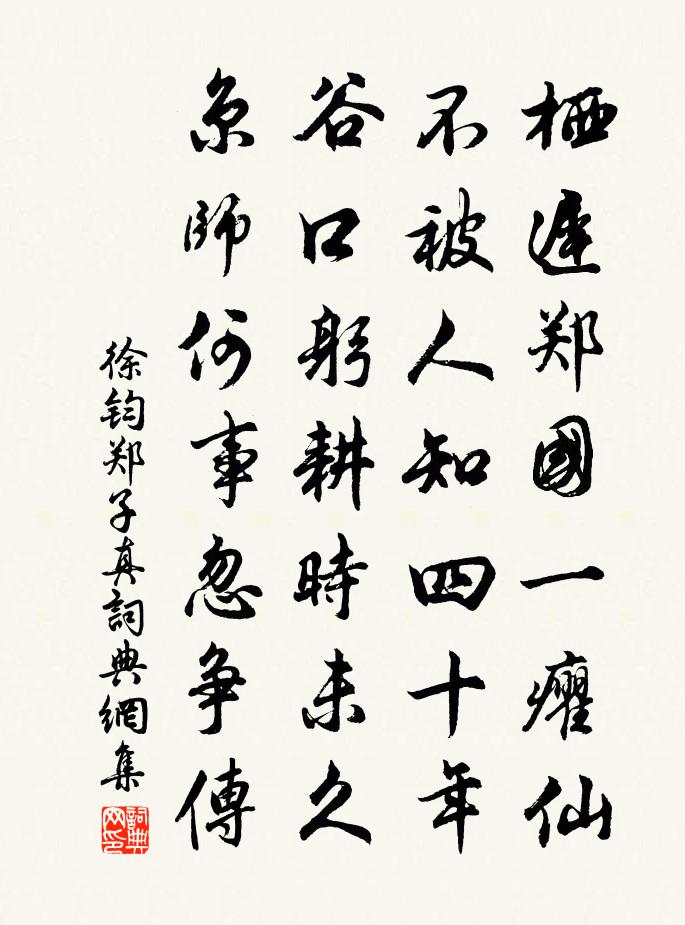 栖遲郑國一癯仙
不被人知四十年
谷口躬耕時未久
京師何事忽争傳
徐钧郑子真詞典網集
詞典网印